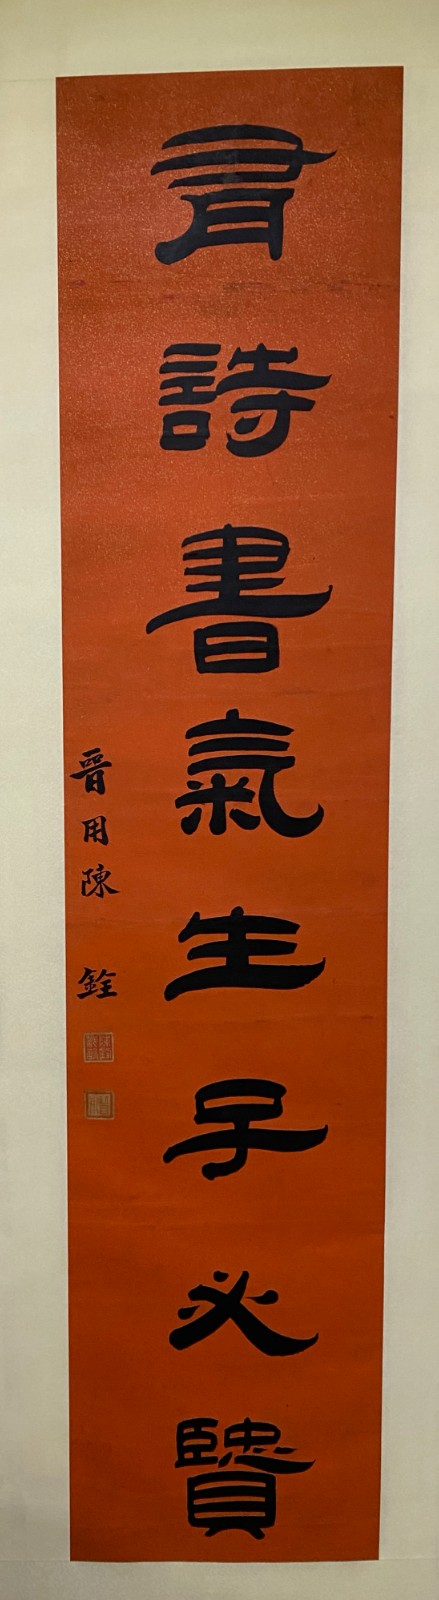 有詩書氣生子必贒
晉用陳銓